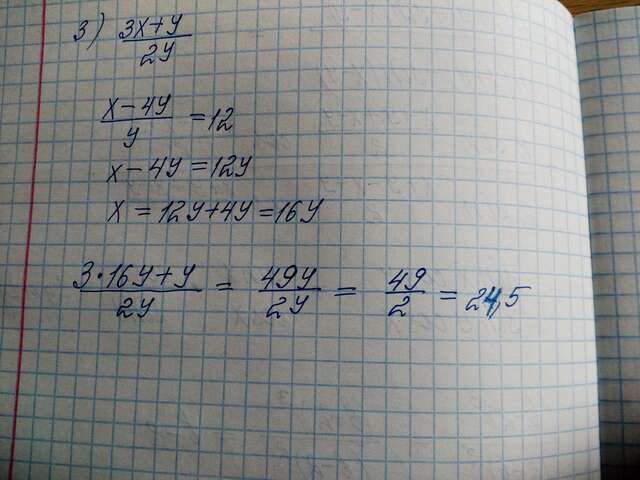 3) (3x+y)/(2y)
(x-4y)/y = 12
x-4y = 12y
x = 12y+4y = 16y
(3·16y+y)/(2y) = (49y)/(2y) = 49/2 = 24,5